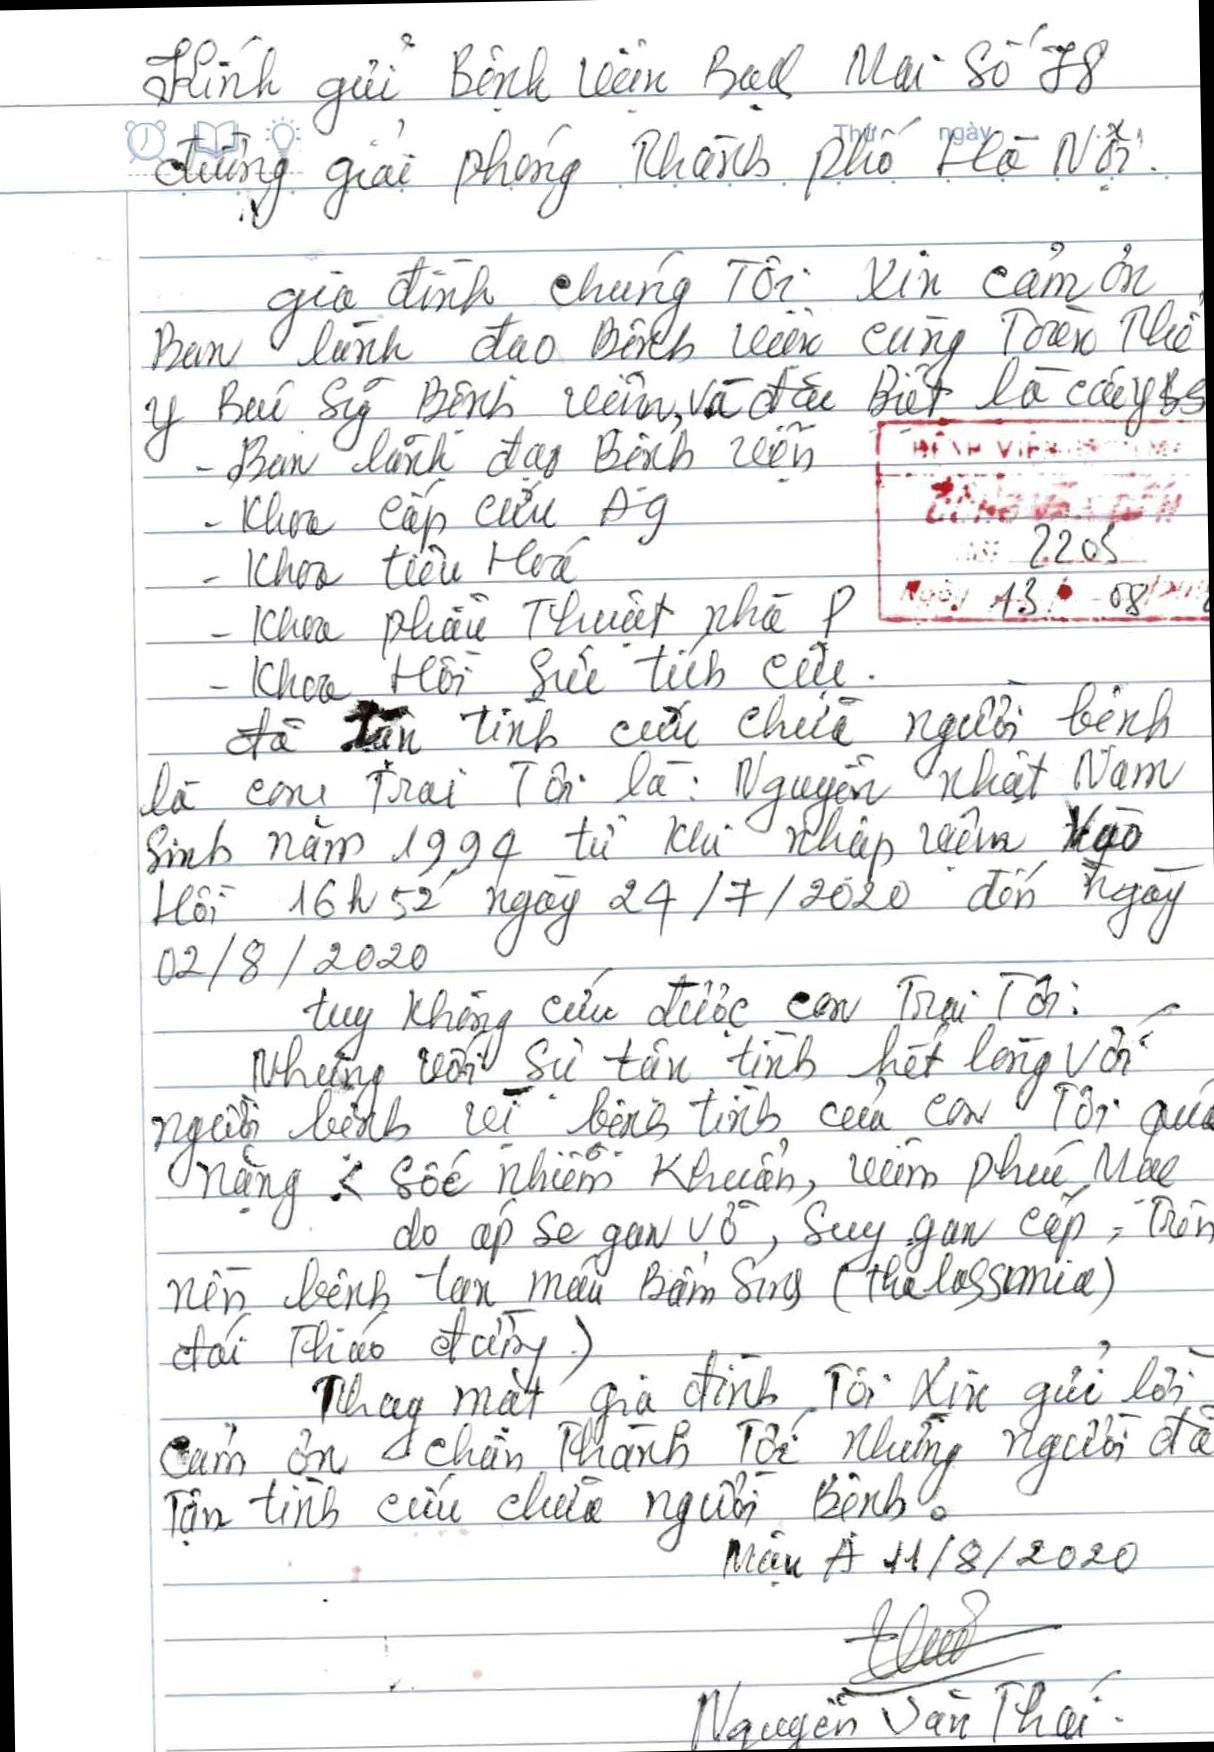 Kính gửi Bệnh viện Bạch Mai Số 78
Thứ ngày
đường giải phóng Thành phố Hà Nội.
gia đình chúng Tôi Xin cảm ơn
Ban lãnh đạo Bệnh viện cùng Toàn Thể
y Bác Sỹ Bệnh viện, và đặc Biệt là các y bs
- Ban lãnh đạo Bệnh viện
BỆNH VIỆN
CÔNG VĂN ĐẾN
- Khoa cấp cứu A9
2205
- Khoa tiêu Hoá
Ngày 13 08
- Khoa phẫu Thuật nhà P
- Khoa Hồi Sức tích cực.
đã tận tình cứu chữa người bệnh
là con Trai Tôi là: Nguyễn nhật Nam
Sinh năm 1994 từ khi nhập viện vào
Hồi 16h52 ngày 24/7/2020 đến ngày
02/8/2020
tuy không cứu được con Trai Tôi.
Nhưng với Sự tận tình hết lòng với
người bệnh vì bệnh tình của con Tôi quá
nặng: Sốc nhiễm Khuẩn, viêm phúc Mạc
do áp se gan vỡ, Suy gan cấp, Trên
nền bệnh tan máu Bẩm Sinh (thalassemia)
đái Tháo đường.)
Thay mặt gia đình Tôi Xin gửi lời
cảm ơn chân Thành Tới những người đã
Tận tình cứu chữa người Bệnh.
Mậu A 11/8/2020
Nguyễn Văn Thái.